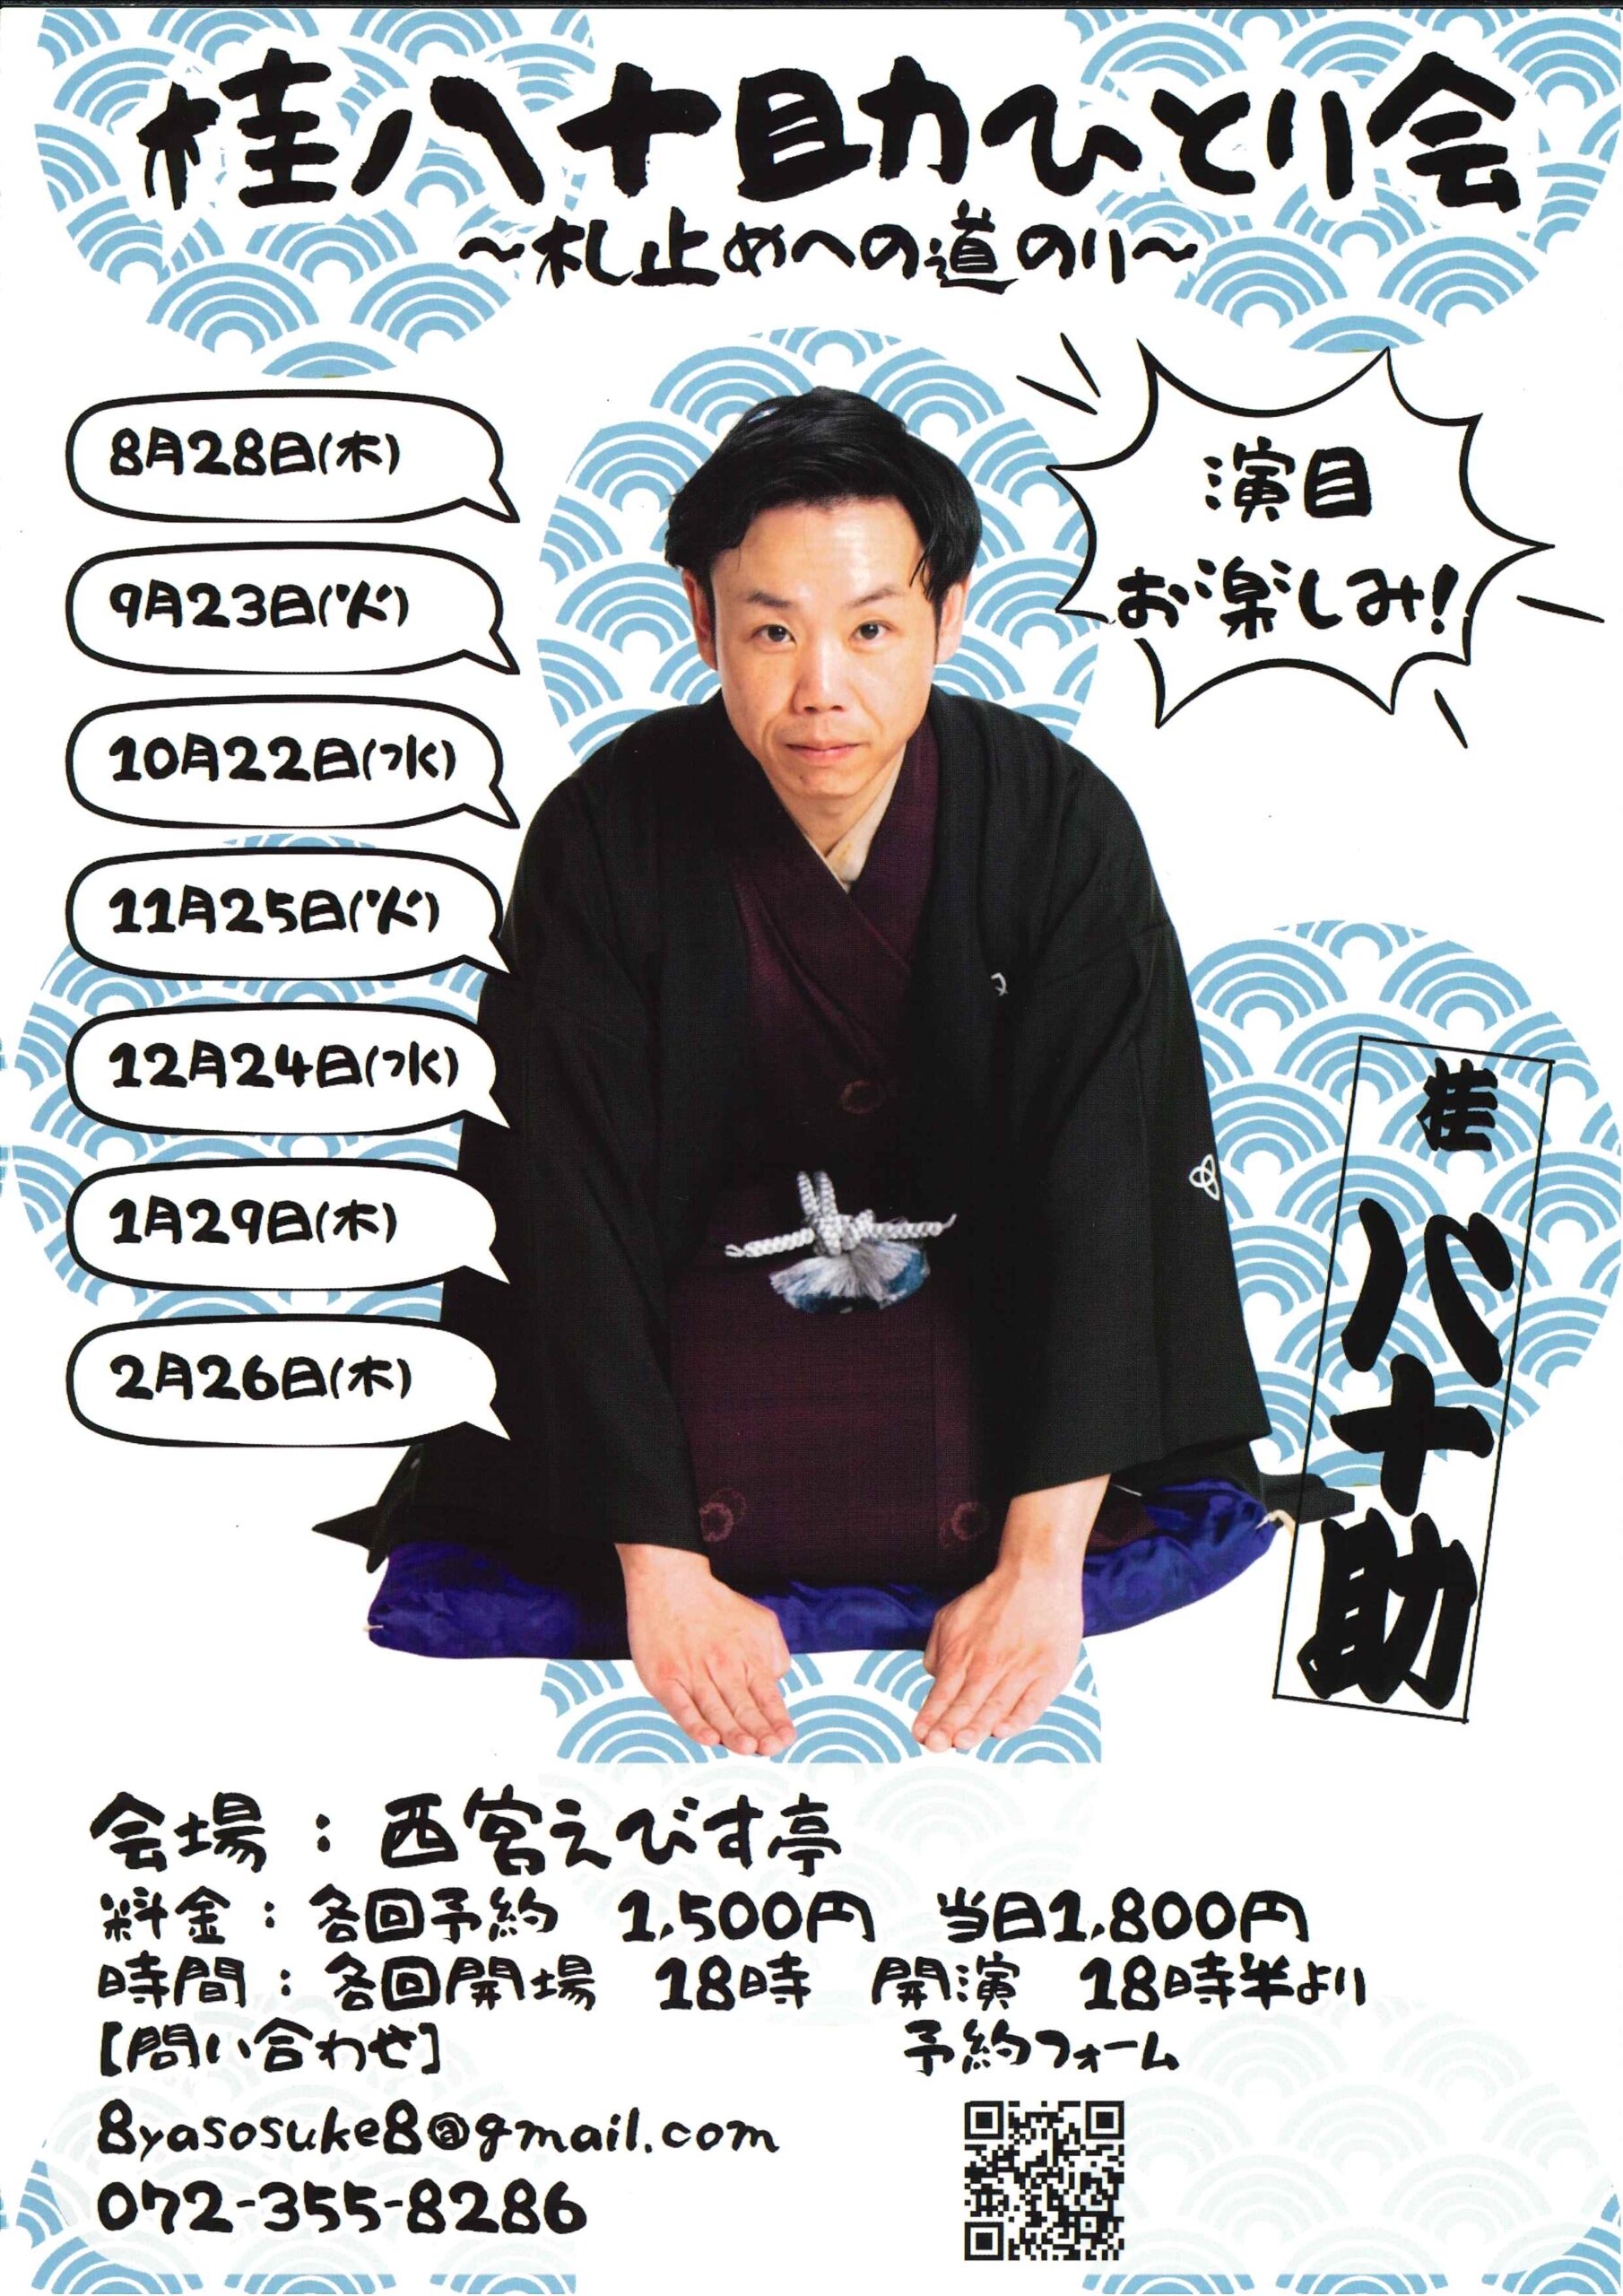 桂八十助ひとり会
～札止めへの道のり～
8月28日(木)
9月23日(火)
10月22日(水)
11月25日(火)
12月24日(水)
1月29日(木)
2月26日(木)
演目
お楽しみ!
桂 八十助
会場：西宮えびす亭
料金：各回予約 1,500円 当日1,800円
時間：各回開場 18時 開演 18時半より
[問い合わせ]
予約フォーム
8yasosuke8@gmail.com
072-355-8286